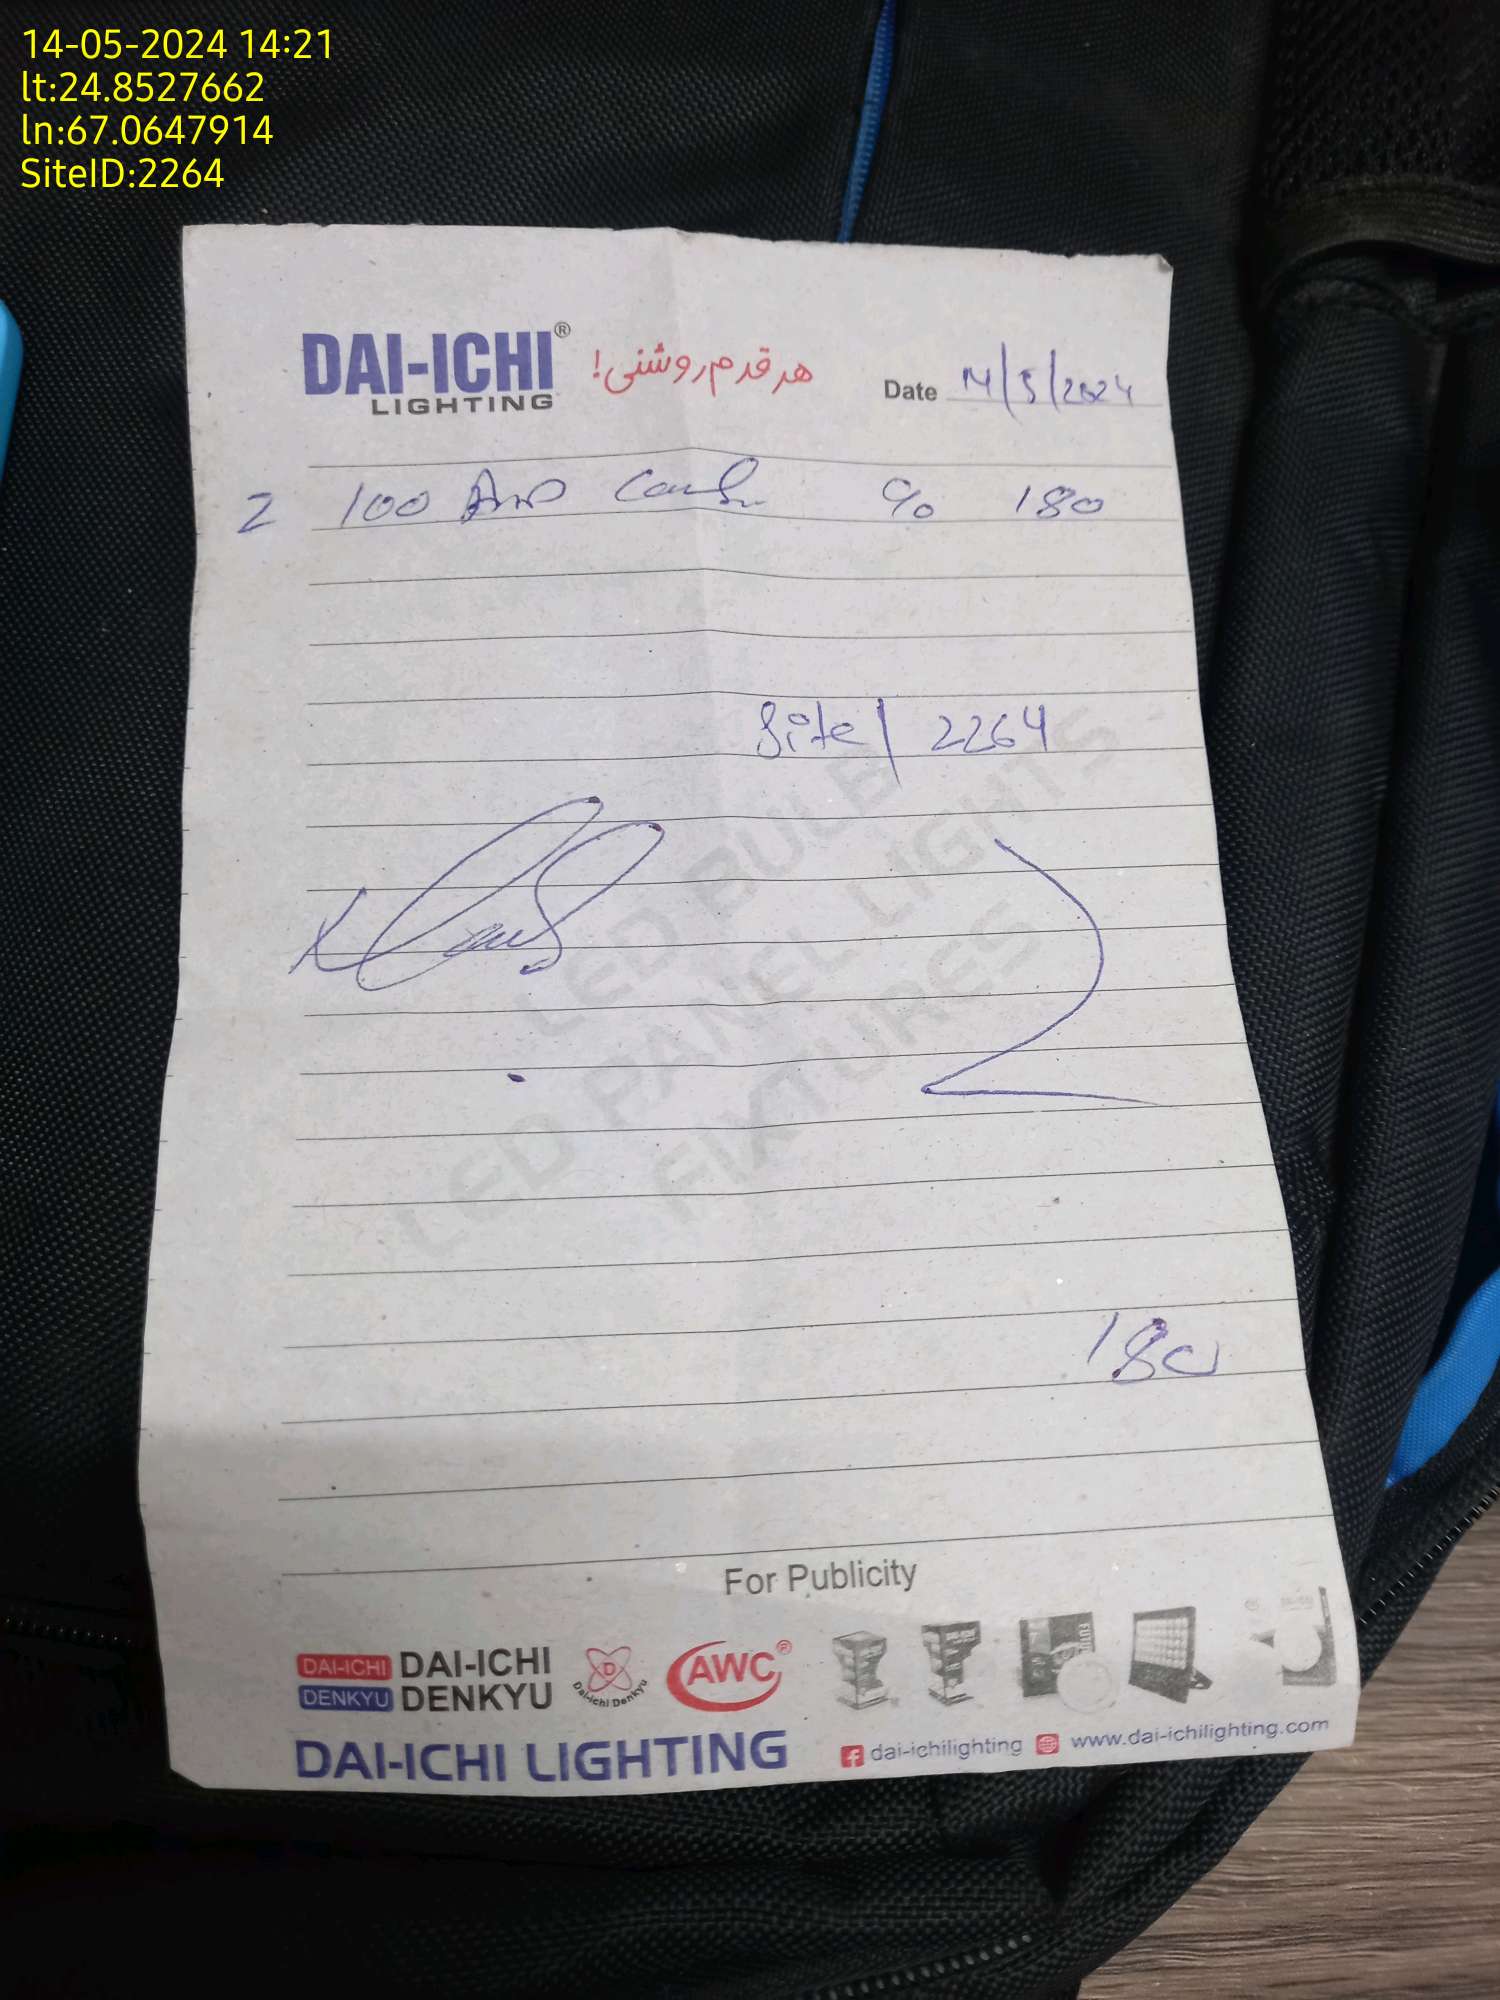 14-05-2024 14:21
lt:24.8527662
ln:67.0647914
SiteID:2264
DAI-ICHI®
LIGHTING
هر قدم روشنی!
Date 14/5/2024
2 100 Amp % 180
Site/ 2264
LED BULB
LED PANEL LIGHTS
FIXTURES
180
For Publicity
DAI-ICHI DAI-ICHI
DENKYU DENKYU
D
Dai-ichi Denkyu
AWC®
DAI-ICHI LIGHTING
dai-ichilighting www.dai-ichilighting.com